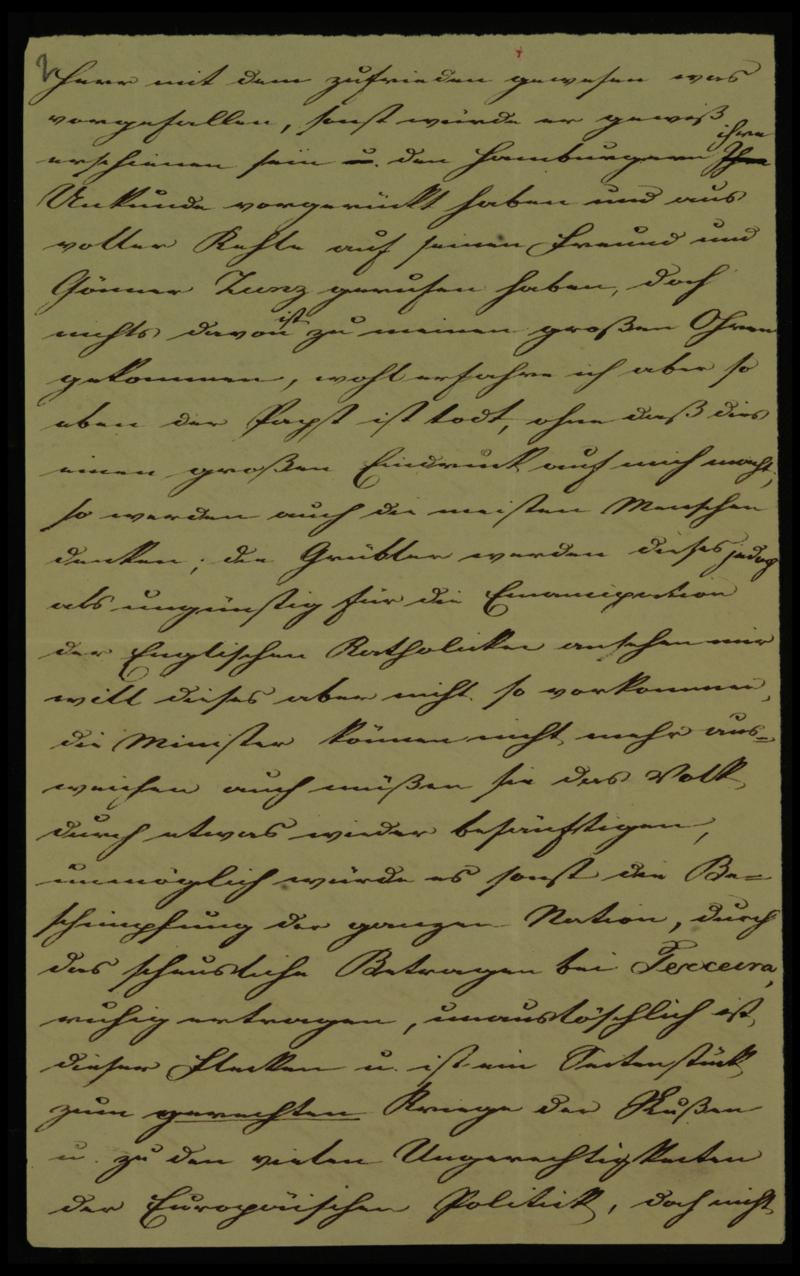 2
Herr mit dem zufrieden gewesen was
vorgefallen, sonst würde er gewiß
erschienen sein u. den Hamburgern Ihre ihre
Unkunde vorgerückt haben und aus
voller Kehle auf seinen Freund und
Gönner Zunz gerufen haben, doch
nichts davon ist zu meinen großen Ohren
gekommen, wohl erfahre ich aber so
eben der Papst ist todt, ohne daß dies
einen großen Eindruck auf mich macht,
so werden auch die meisten Menschen
denken; die Grübler werden dieses jedoch
als ungünstig für die Emancipation
der Englischen Katholicken ansehen mir
will dieses aber nicht so vorkommen,
die Minister können nicht mehr aus=
weichen auch müßen sie das Volk
durch etwas wieder besänftigen,
unmöglich würde es sonst die Be=
schimpfung der ganzen Nation, durch
das scheusliche Betragen bei Terceira,
ruhig ertragen, unauslöschlich ist
dieser Flecken u. ist ein Seitenstück
zum gerechten Kriege der Rußen
u. zu den vielen Ungerechtigkeiten
der Europäischen Politick, doch nicht